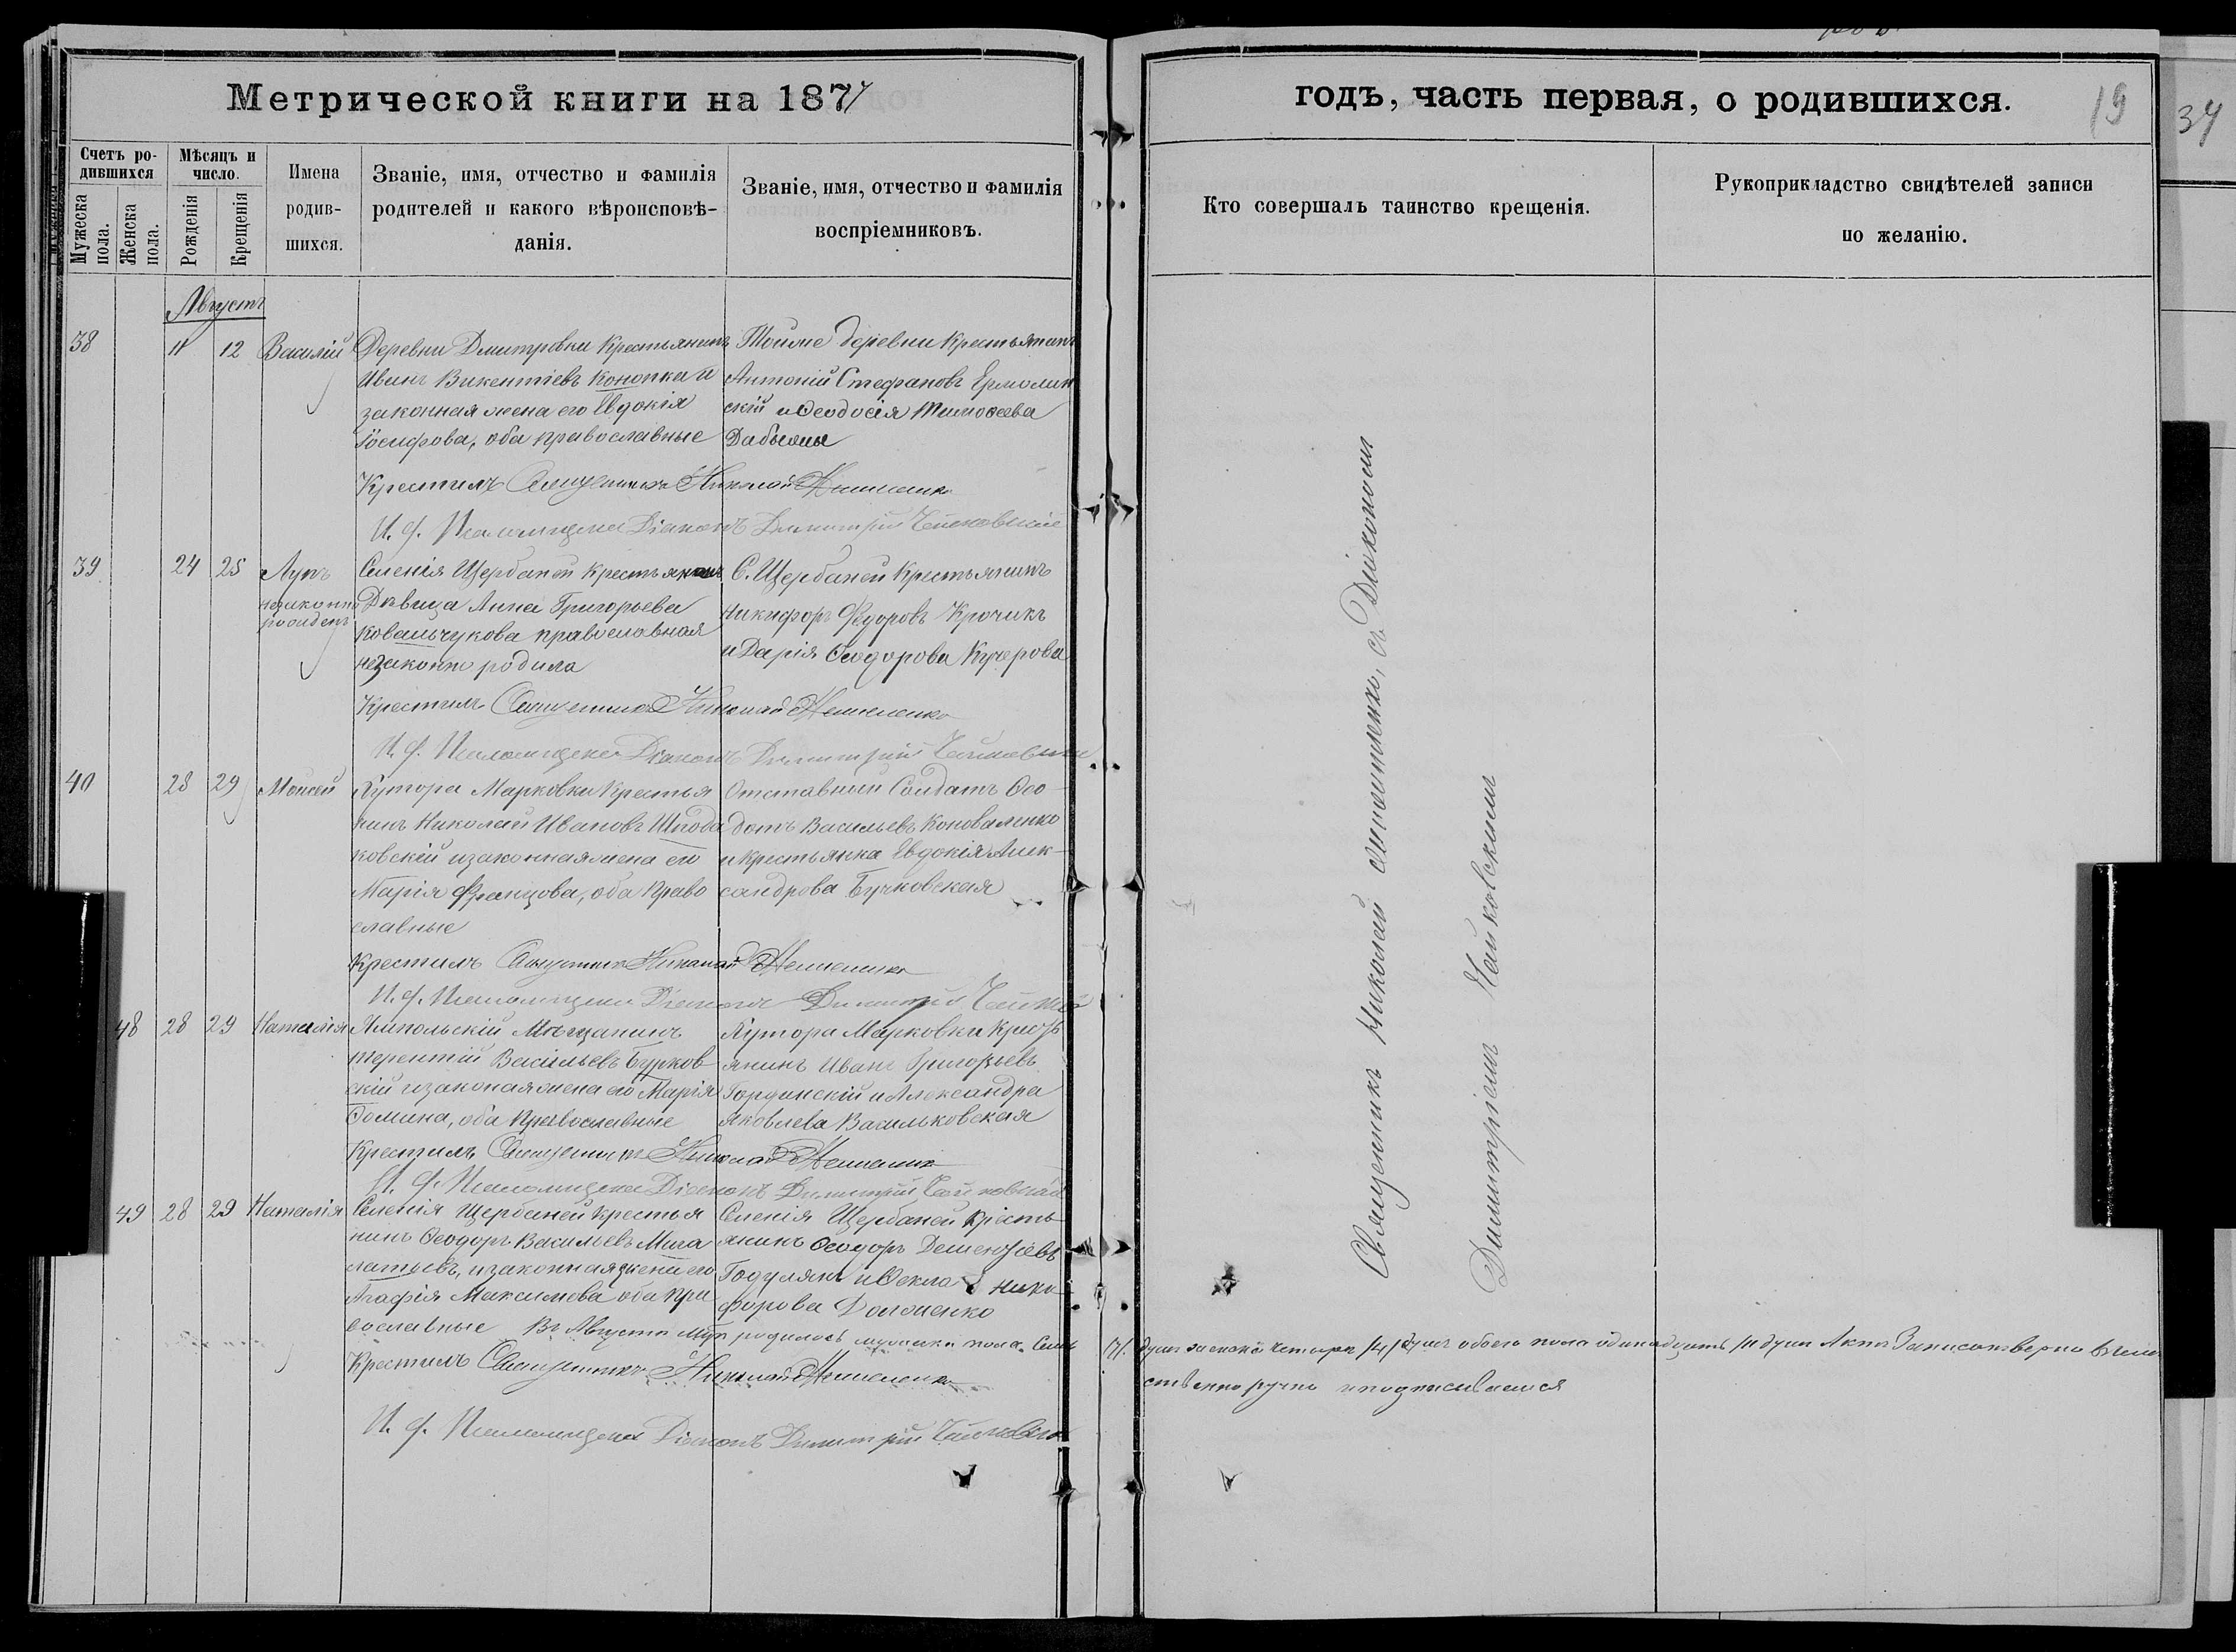 Метрической книги на 1877
годъ, часть первая, о родившихся.
19
34
Счетъ ро-
дившихся
Мужеска
пола.
Женска
пола.
Мѣсяцъ и
число.
Рожденія
Крещенія
Имена
родив-
шихся.
Званіе, имя, отчество и фамилія
родителей и какого вѣроисповѣ-
данія.
Званіе, имя, отчество и фамилія
воспріемниковъ.
Кто совершалъ таинство крещенія.
Рукоприкладство свидѣтелей записи
по желанію.
Августъ
38 11 12 Василій
Деревни Дмитровки Крестьянинъ
Иванъ Викентіевъ Конопка и
законная жена его Евдокія
Іосифова, оба православные
Тойже деревни Крестьянинъ
Антоній Стефановъ Ермолин
скій и Ѳеодосія Тимоѳеева
Крестилъ Священникъ Николай
И. ф. Псаломщика Діаконъ Димитрій Чайковскій
39 24 25 Лупъ
незаконно
рожденъ
Селенія Щербаней крестьянка
Дѣвица Анна Григорьева
Ковальчукова православная
незаконно родила
С. Щербаней Крестьянинъ
Никифоръ Федоровъ Крочикъ
и Дарія Ѳеодорова Кучерова
Крестилъ Священникъ Николай
И. ф. Псаломщика Діаконъ Димитрій Чайковскій
40 28 29 Моисей
Хутора Марковки Крестья
нинъ Николай Ивановъ Шпода
ковскій и законная жена его
Марія Францова, оба Право
славные
Отставный Солдатъ Ѳео-
дотъ Васильевъ Коноваленко
и крестьянка Евдокія Алек-
сандрова Бучковская
Крестилъ Священникъ Николай
И. ф. Псаломщика Діаконъ Димитрій
48 28 29 Наталія
Ямпольскій Мѣщанинъ
Терентій Васильевъ Бурков
скій и законая жена его Марія
Фомина, оба Православные
Хутора Марковки Крест
янинъ Иванъ Григорьевъ
Гординскій и Александра
Яковлева Васильковская
Крестилъ Священникъ Николай
И. ф. Псаломщика Діаконъ Димитрій Чайковскій
49 28 29 Наталія
Селенія Щербаней Крестья
нинъ Ѳеодоръ Васильевъ
и законная жена его
Агафія Максимова оба пра
вославные
Селенія Щербаней Кресть
янинъ Ѳеодоръ
и Ѳекла Ники
форова
Въ Августѣ родилось мужска пола Семь
/7/. душъ женска четыре /4/ душъ обоего пола одинадцать душъ Актъ Записанъ верно
ственно ручно и подписываемся
Крестилъ Священникъ Николай
И. ф. Псаломщика Діаконъ Димитрій Чайковскій
Священникъ Николай съ Діакономъ
Димитріемъ Чайковскимъ